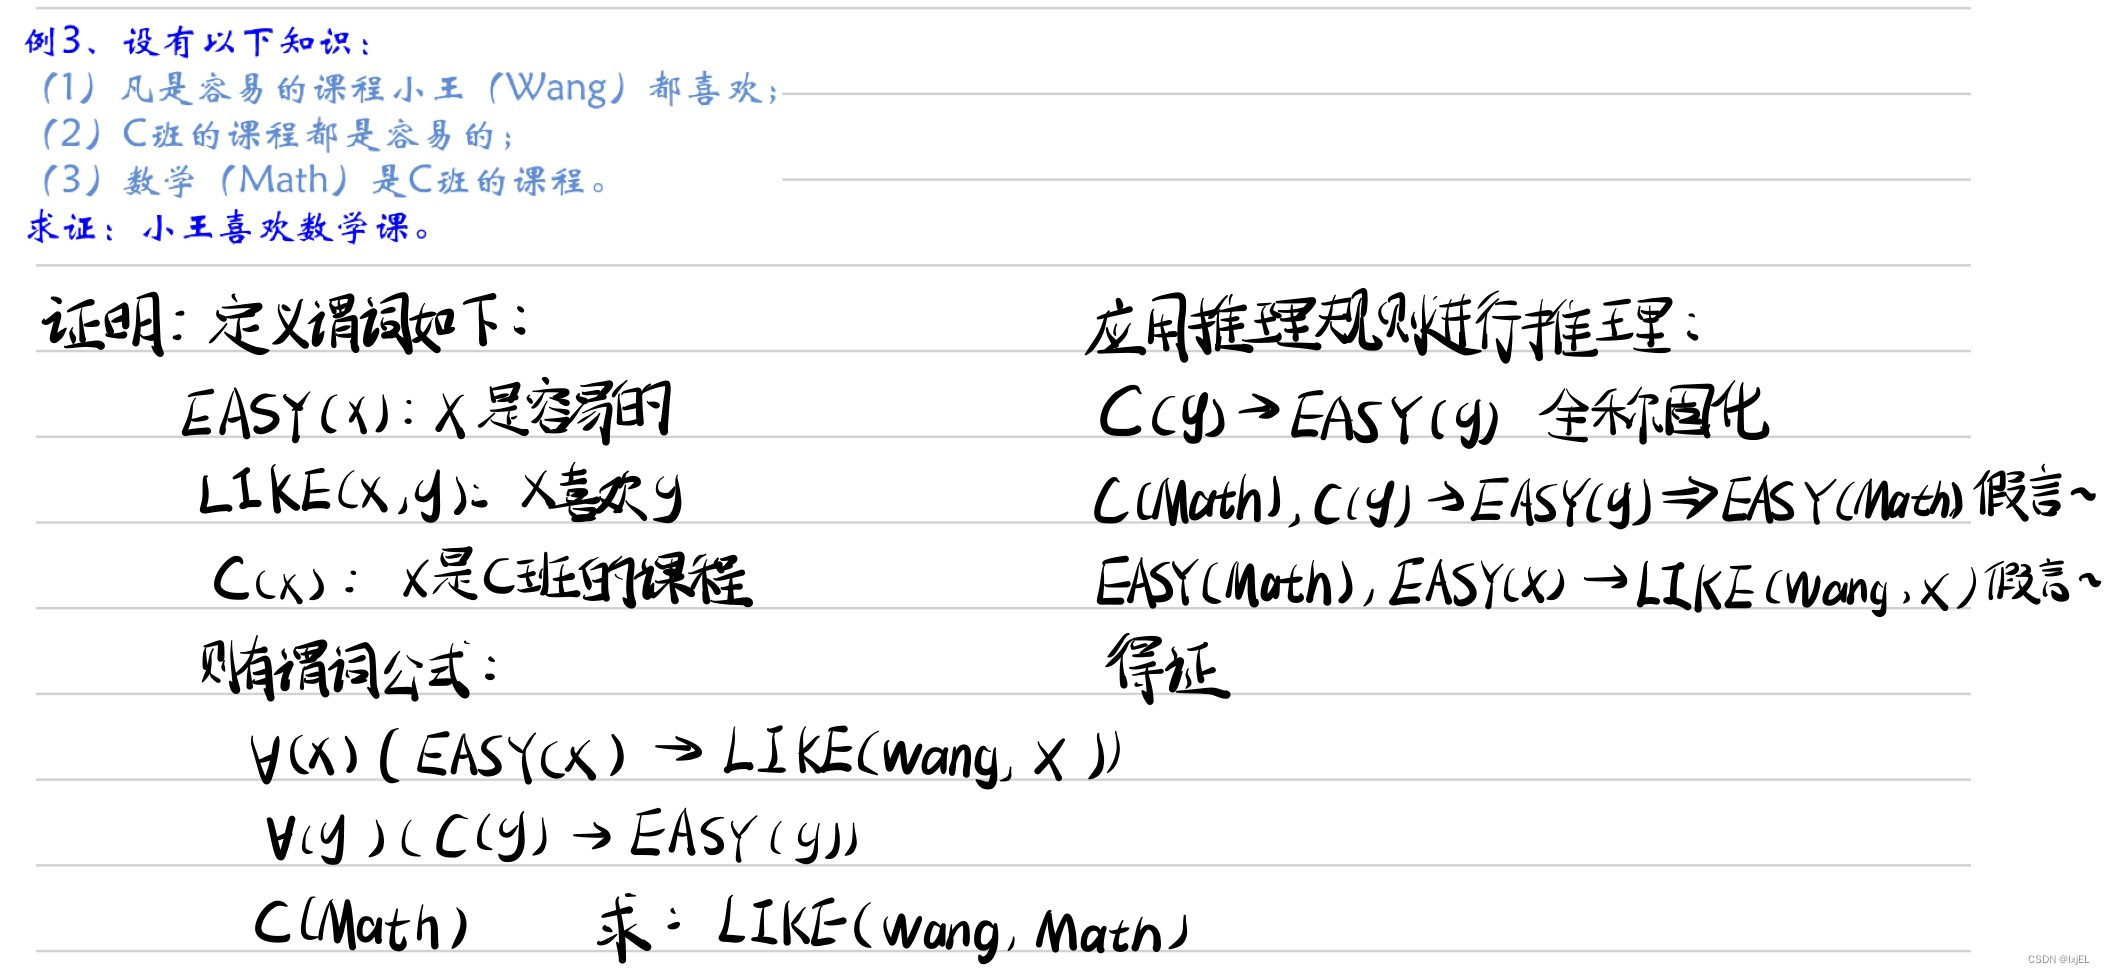 例3、设有以下知识：
（1）凡是容易的课程小王（Wang）都喜欢；
（2）C班的课程都是容易的；
（3）数学（Math）是C班的课程。
求证：小王喜欢数学课。
证明：定义谓词如下：
EASY(x)：x是容易的
LIKE(x,y)：x喜欢y
C(x)：x是C班的课程
则有谓词公式：
∀(x)(EASY(x)→LIKE(Wang,x))
∀(y)(C(y)→EASY(y))
C(Math) 求：LIKE(Wang,Math)
应用推理规则进行推理：
C(y)→EASY(y) 全称固化
C(Math),C(y)→EASY(y)⇒EASY(Math) 假言~
EASY(Math),EASY(x)→LIKE(Wang,x) 假言~
得证
CSDN @lxjEL